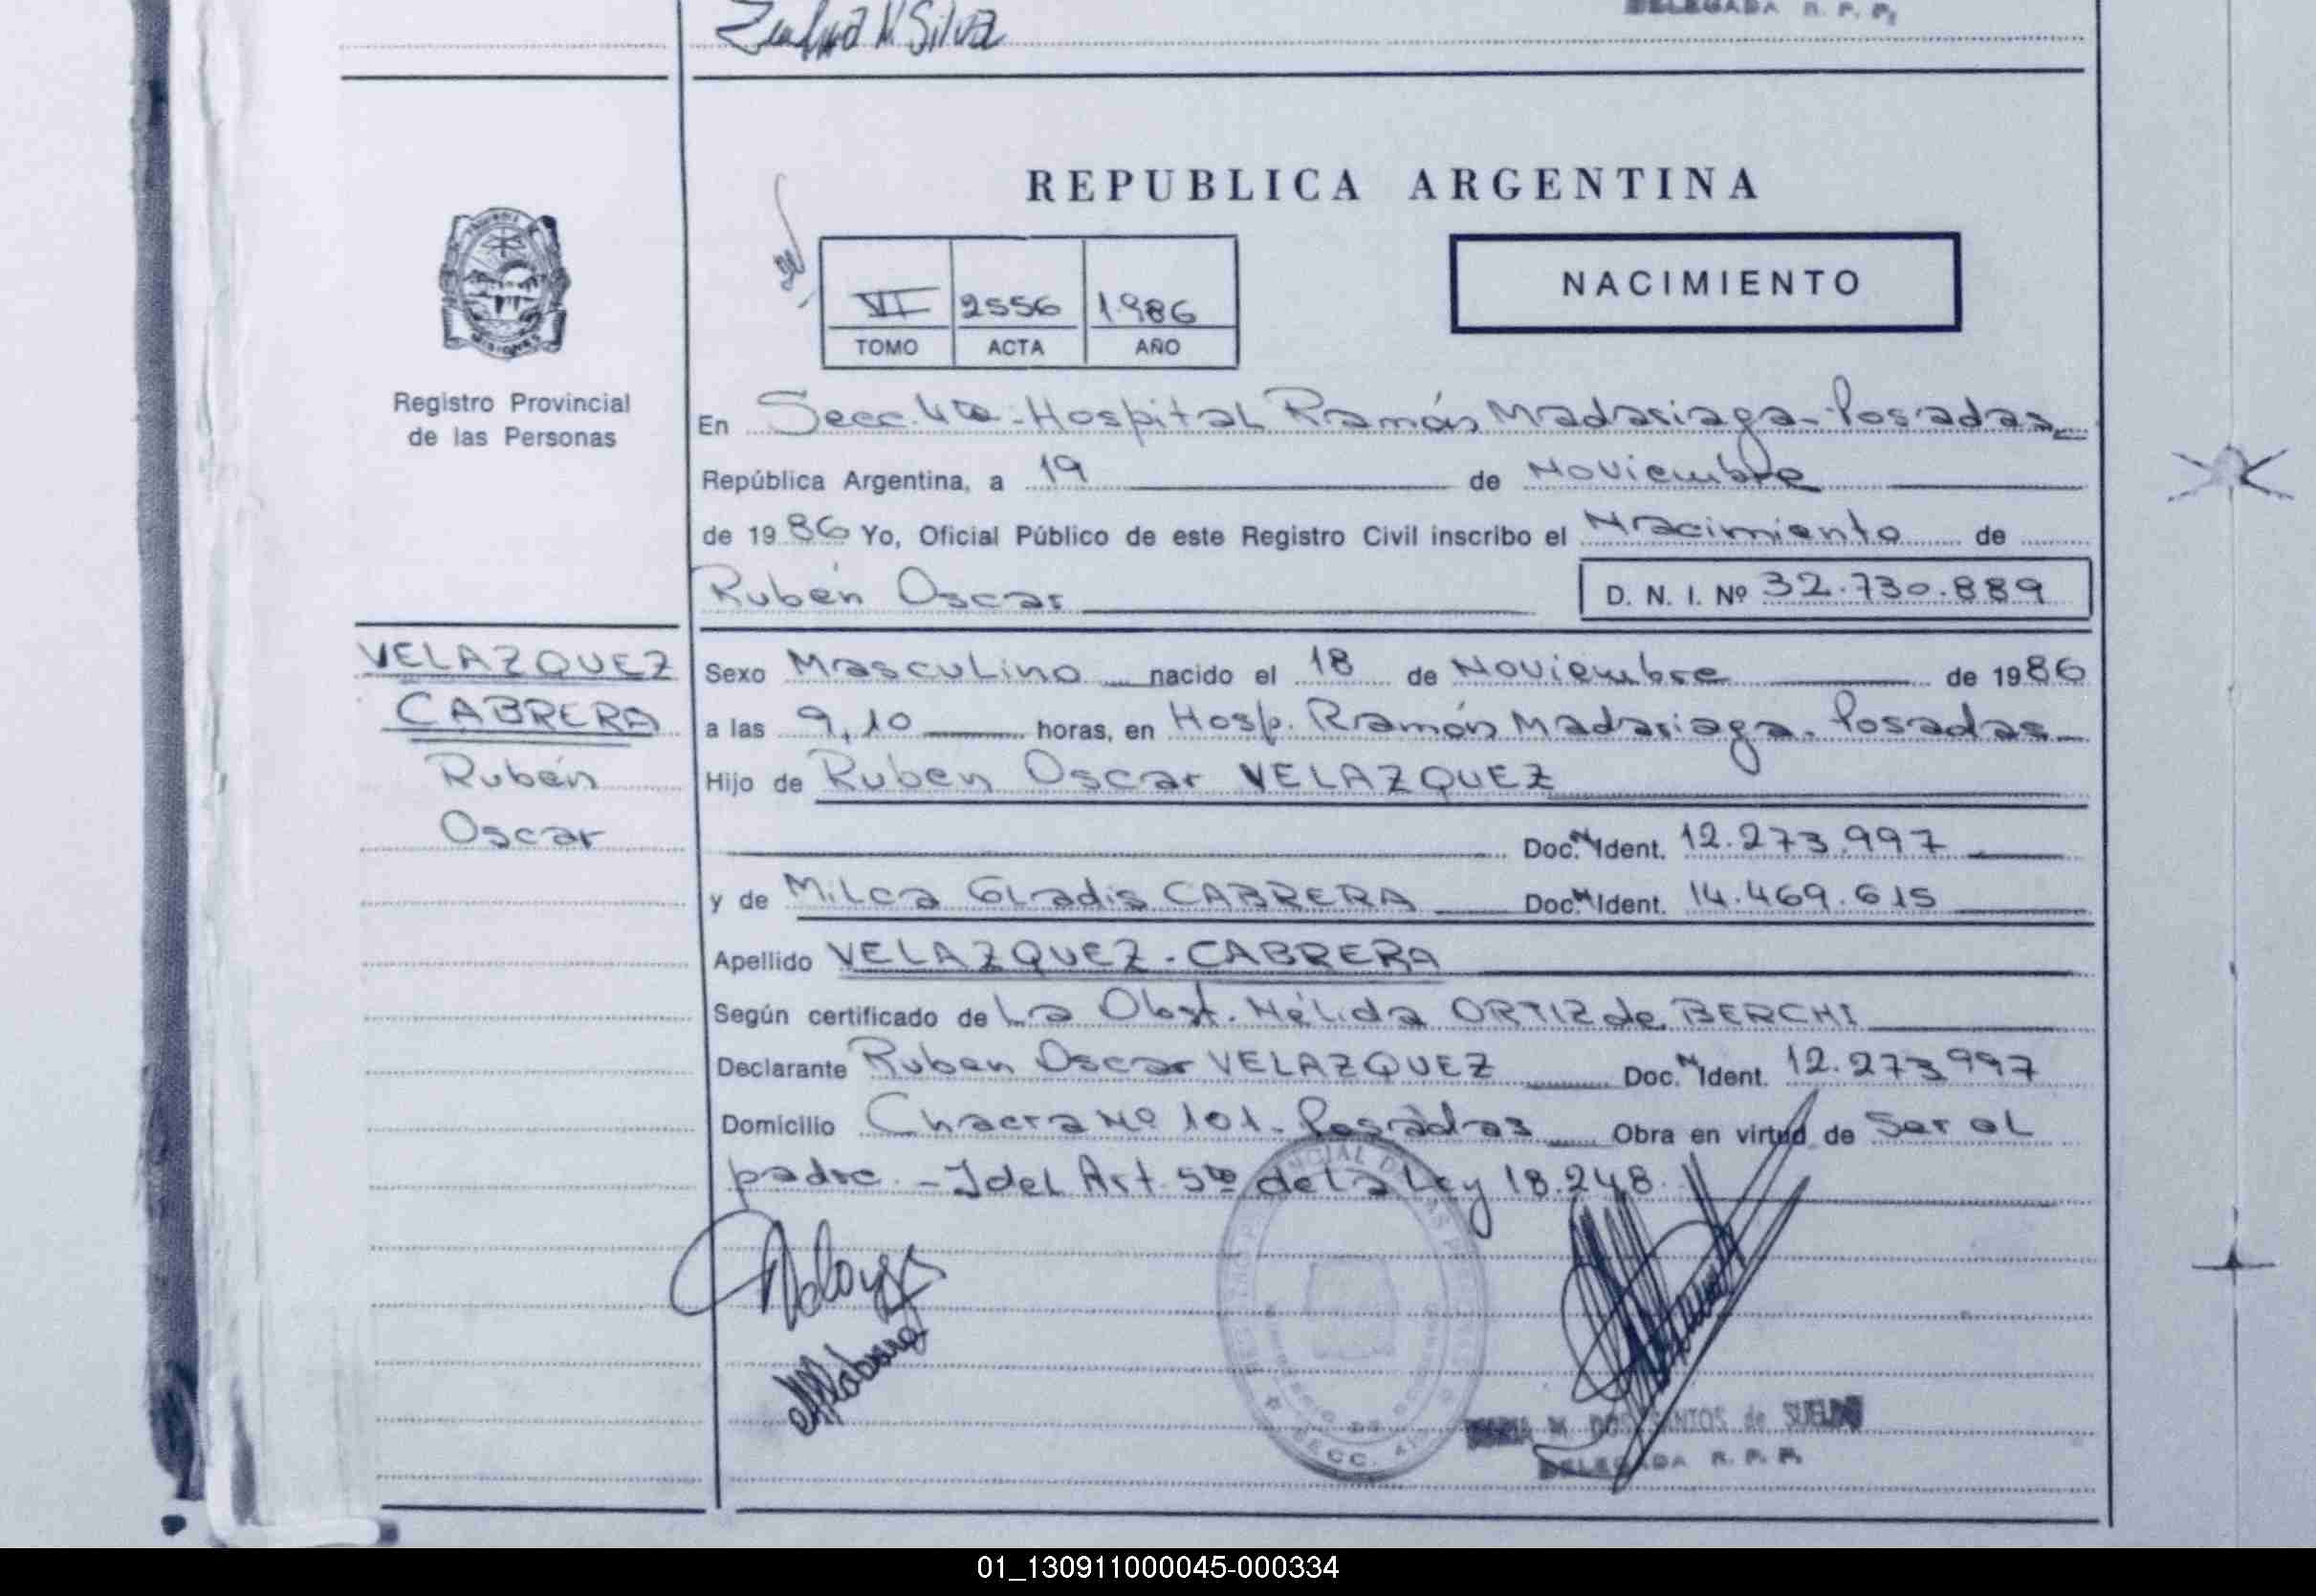 Silva
DELEGADA R. P. P.
REPUBLICA ARGENTINA
VI 2556 1.986
TOMO ACTA AÑO
NACIMIENTO
MISIONES
Registro Provincial
de las Personas
En Secc. 4ta - Hospital Ramón Madariaga - Posadas
República Argentina, a 19 de Noviembre
de 1986 Yo, Oficial Público de este Registro Civil inscribo el Nacimiento de
Rubén Oscar D. N. I. Nº 32.730.889
VELAZQUEZ
CABRERA
Rubén
Oscar
Sexo Masculino nacido el 18 de Noviembre de 1986
a las 9,10 horas, en Hosp. Ramón Madariaga. Posadas
Hijo de Ruben Oscar VELAZQUEZ
Doc. N. Ident. 12.273.997
y de Milca Gladis CABRERA Doc. N. Ident. 14.469.615
Apellido VELAZQUEZ - CABRERA
Según certificado de La Obst. Nélida ORTIZ de BERCHI
Declarante Ruben Oscar VELAZQUEZ Doc. N. Ident. 12.273.997
Domicilio Chacra Nº 101. Posadas Obra en virtud de Ser el
padre. - I del Art. 5to de la Ley 18.248.
SECC. 4
M. DOS SANTOS de
DELEGADA R. P. P.
01_130911000045-000334